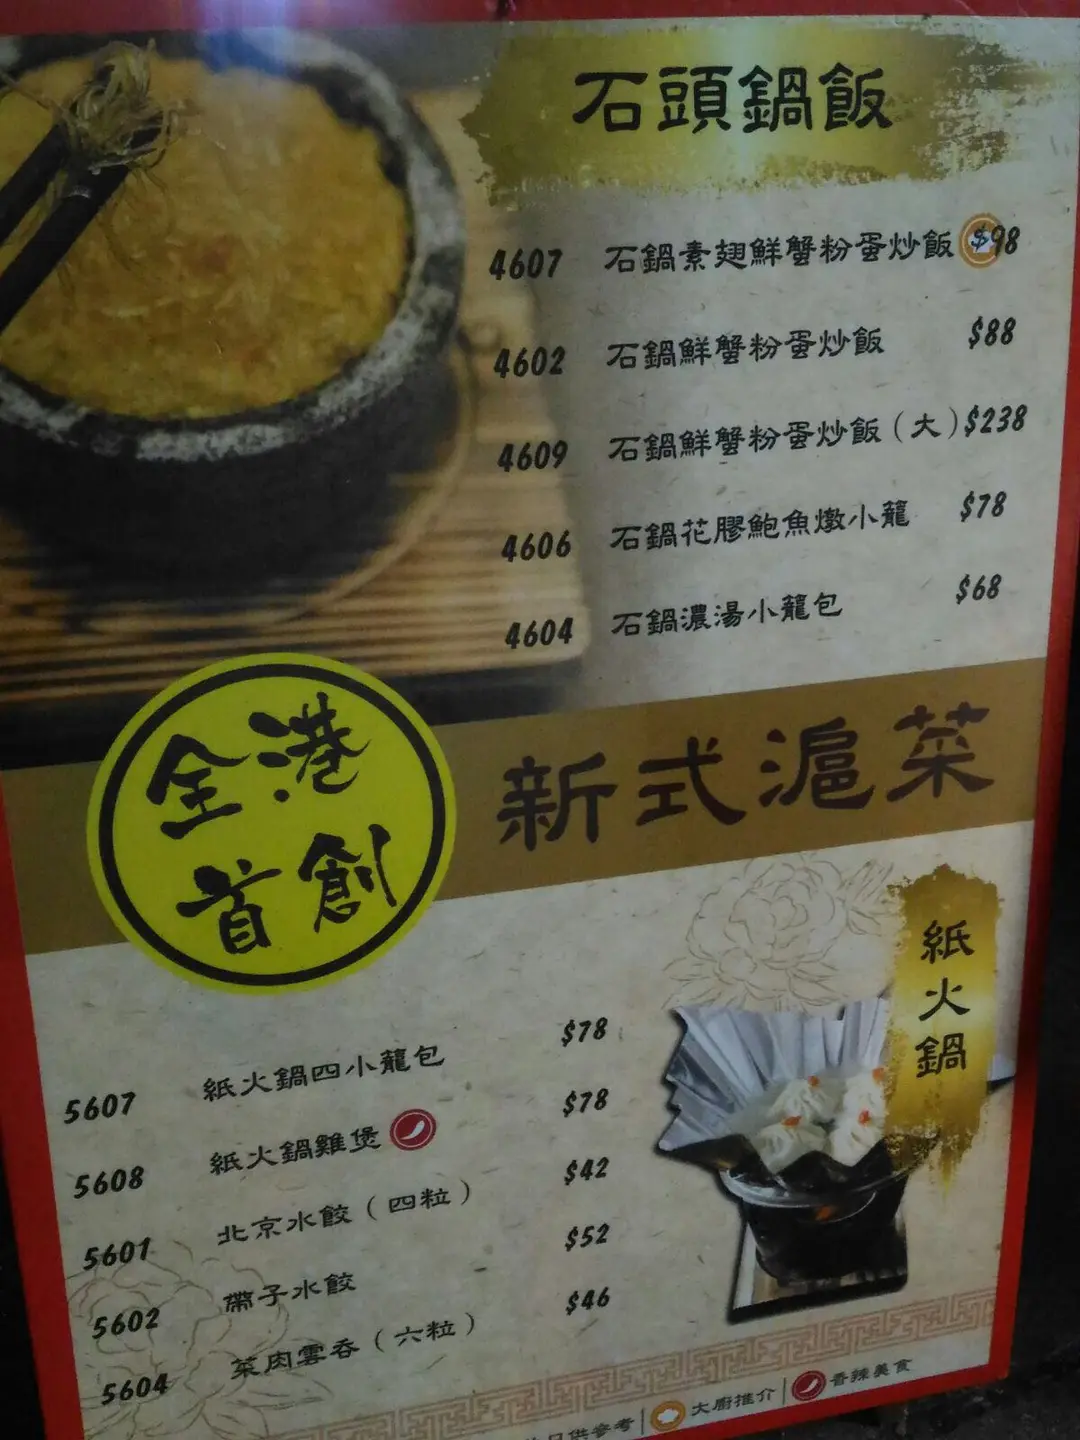 石頭鍋飯
4607 石鍋素翅鮮蟹粉蛋炒飯 $98
4602 石鍋鮮蟹粉蛋炒飯 $88
4609 石鍋鮮蟹粉蛋炒飯(大) $238
4606 石鍋花膠鮑魚燉小籠 $78
4604 石鍋濃湯小籠包 $68
全港
首創
新式滬菜
紙火鍋
5607 紙火鍋四小籠包 $78
5608 紙火鍋雞煲 $78
5601 北京水餃(四粒) $42
5602 帶子水餃 $52
5604 菜肉雲吞(六粒) $46
只供參考 | 大廚推介 | 香辣美食